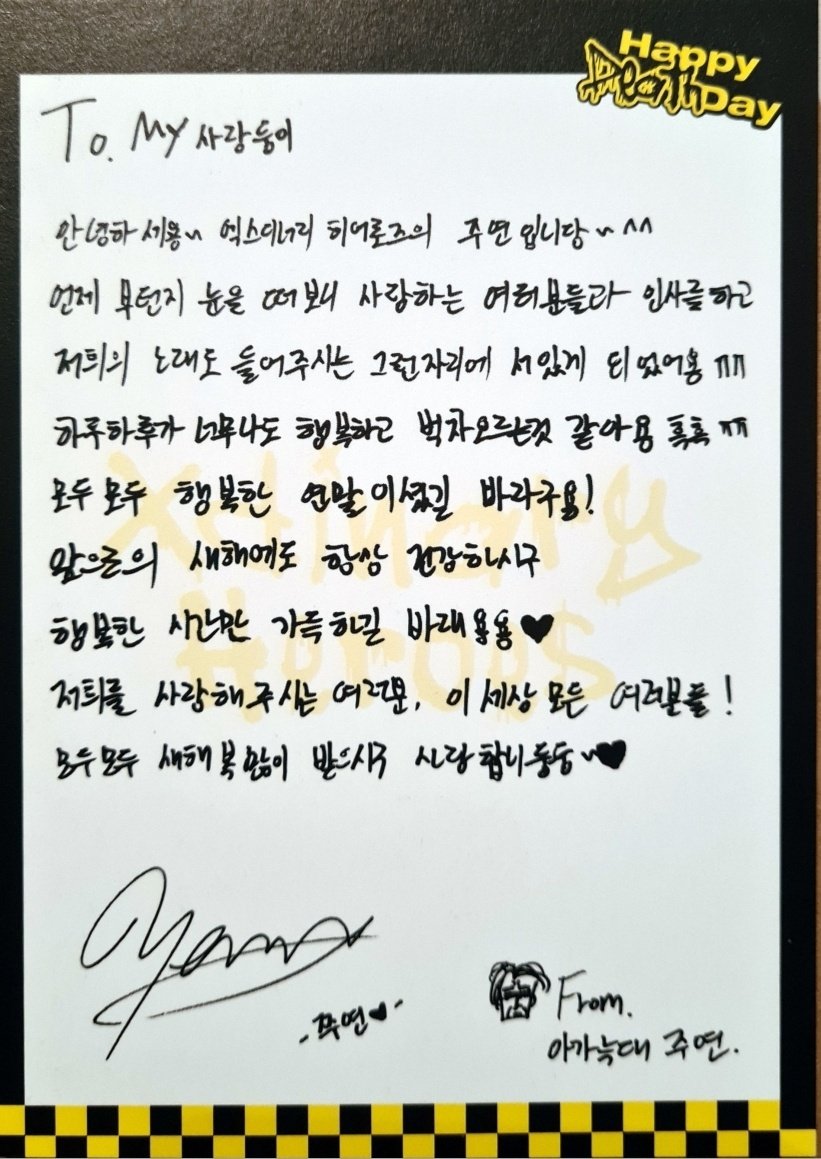 Happy
Death Day
To. My 사랑둥이
안녕하세용~ 엑스디너리 히어로즈의 주연입니당~^^
언제부턴지 눈을 떠보니 사랑하는 여러분들과 인사를하고
저희의 노래도 들어주시는 그런자리에 서있게 되었어용 ㅠㅠ
하루하루가 너무나도 행복하고 벅차오르는것 같아용 흑흑 ㅠㅠ
모두모두 행복한 연말이셨길 바라구용!
앞으로의 새해에도 항상 건강하시구
행복한 시간만 가득하길 바래용용♥
저희를 사랑해주시는 여러분, 이 세상 모든 여러분들!
모두모두 새해 복 많이 받으시구 사랑합니둥둥~♥
Xdinary
Heroes
-주연♥-
From.
아가늑대 주연.